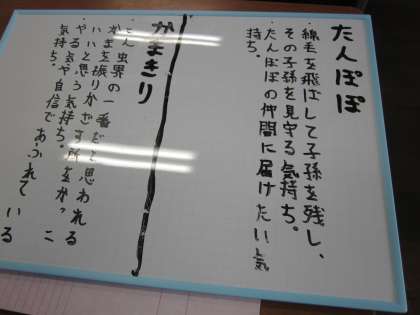 たんぽぽ
・綿毛を飛ばして子孫を残し、
その子孫を見守る気持ち。
・たんぽぽの仲間に届けたい気
持ち。
かまきり
・こん虫界の一番だと思われる
かまを振りかざす所をかっこ
いいと思う気持ち。
・やる気や自信であふれている
気持ち。